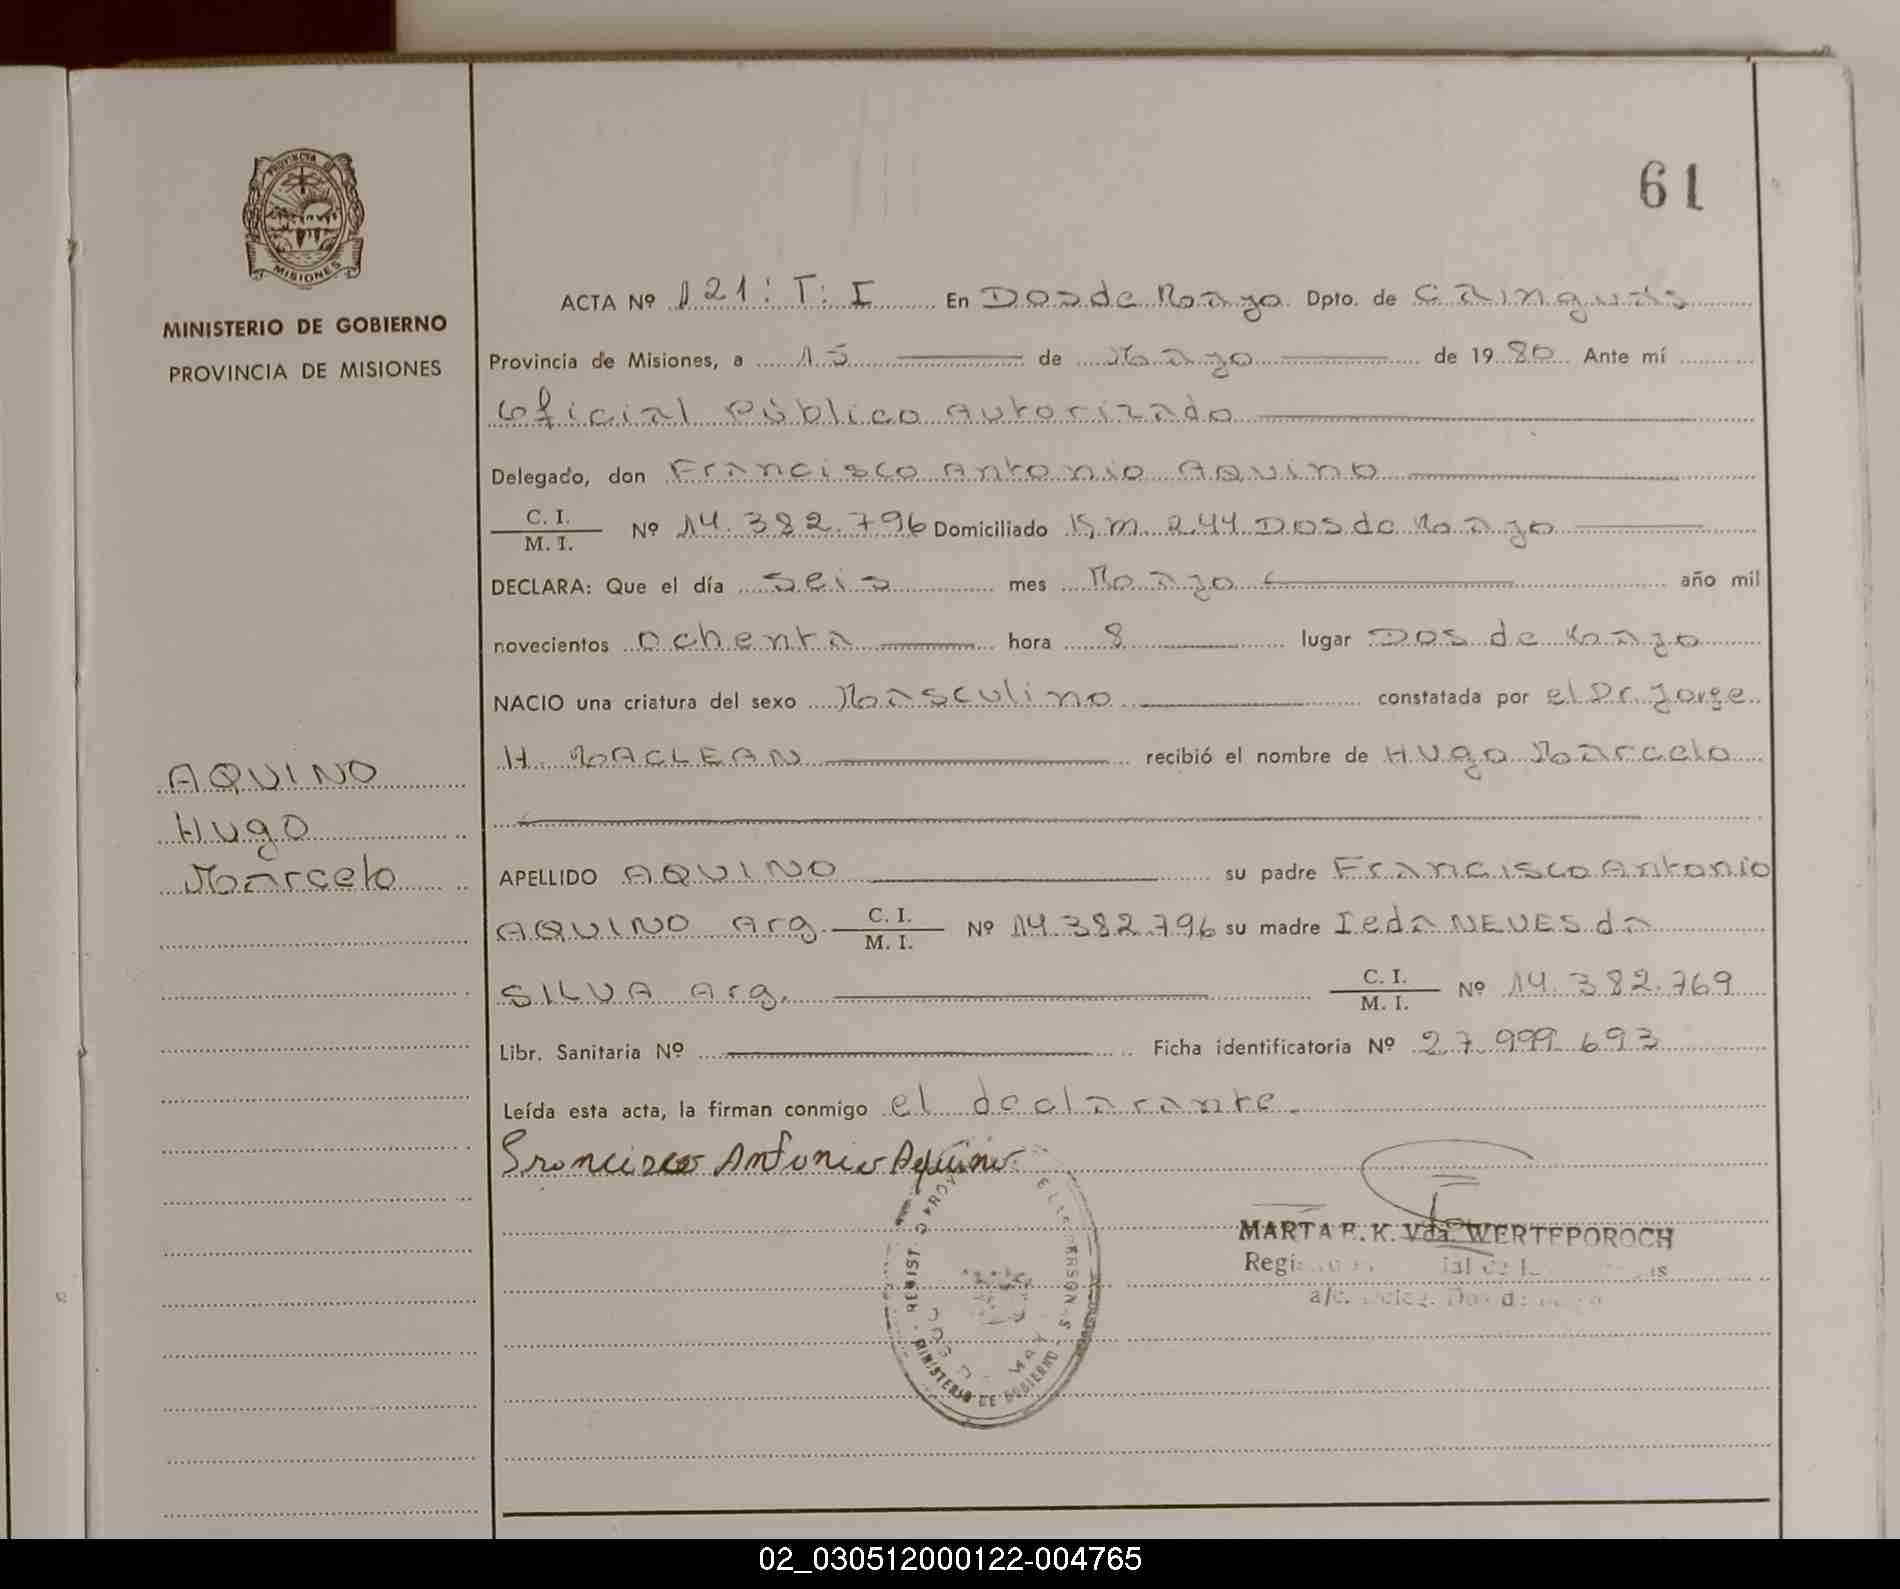 61
PROVINCIA DE
MISIONES
MINISTERIO DE GOBIERNO
PROVINCIA DE MISIONES
ACTA Nº 121: T: I En Dos de Mayo Dpto. de Cainguás
Provincia de Misiones, a 15 de Mayo de 1980 Ante mí
Oficial Público Autorizado
Delegado, don Francisco Antonio Aquino
C. I.
M. I. Nº 14.382.796 Domiciliado Km 244 Dos de Mayo
DECLARA: Que el día seis mes Mayo año mil
novecientos ochenta hora 8 lugar Dos de Mayo
NACIO una criatura del sexo Masculino constatada por el Dr. Jorge
H. MACLEAN recibió el nombre de Hugo Marcelo
AQUINO
Hugo
Marcelo
APELLIDO AQUINO su padre Francisco Antonio
AQUINO Arg. C. I. M. I. Nº 14.382.796 su madre Ieda NEVES da
SILVA Arg. C. I. M. I. Nº 14.382.769
Libr. Sanitaria Nº Ficha identificatoria Nº 27.999.693
Leída esta acta, la firman conmigo el declarante.
Francisco Antonio Aquino
MARTA E. K. Vda. WERTEPOROCH
a/c. Deleg. Dos de Mayo
MINISTERIO DE GOBIERNO
02_030512000122-004765